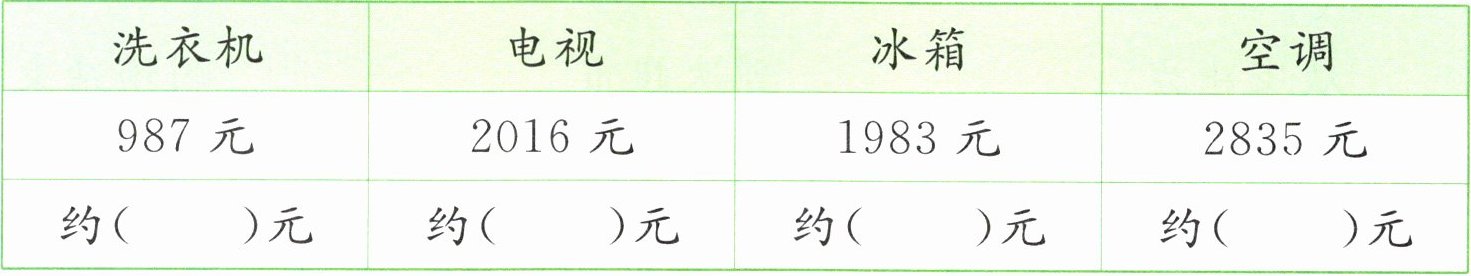 洗衣机 电视 冰箱 空调
987 元 2016 元 1983 元 2835 元
约( )元 约( )元 约( )元 约( )元